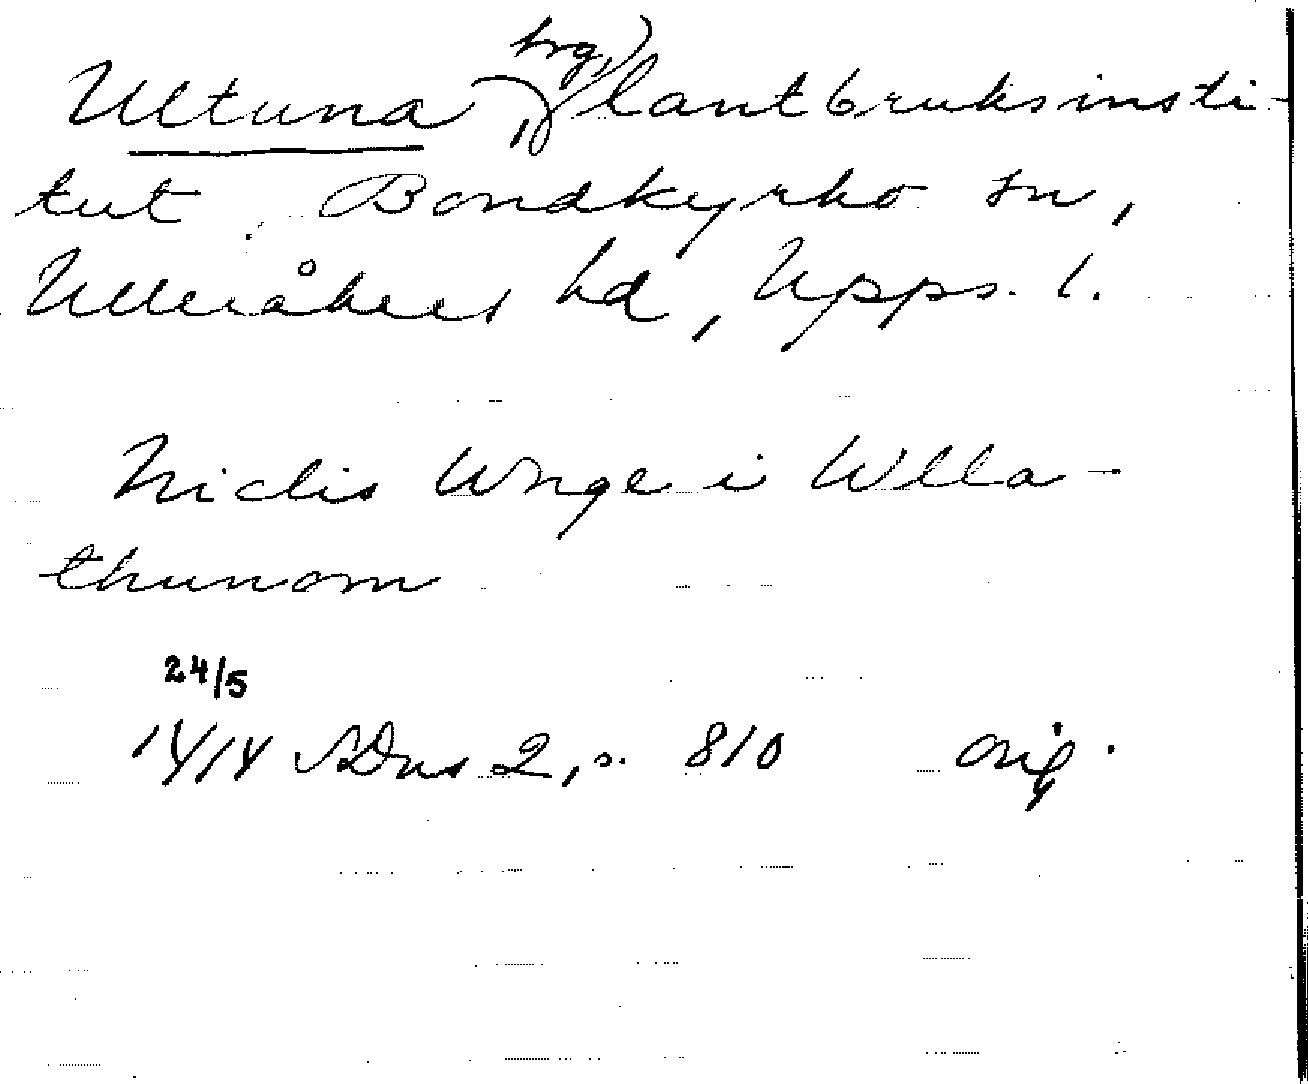 Ultuna, hrg, lantbruksinsti-
tut, Bondkyrko sn,
Ulleråkers hd, Upps. l.
Niclis Unge i Wlla-
thunom
24/5
1414 SDns 2, s. 810 orig.